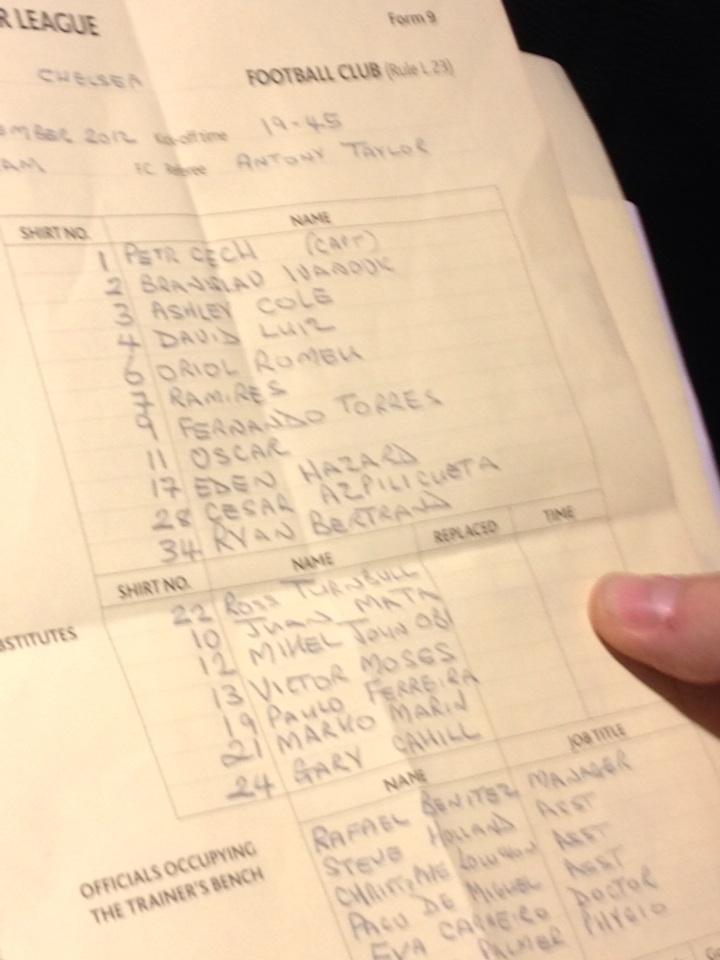 R LEAGUE
Form 9
CHELSEA FOOTBALL CLUB (Rule L.23)
EMBER 2012 Kick-off time 19-45
AM F.C. Referee ANTONY TAYLOR
SHIRT NO. NAME
1 PETR CECH (CAPT)
2 BRANISLAV IVANOVIC
3 ASHLEY COLE
4 DAVID LUIZ
6 ORIOL ROMEU
7 RAMIRES
9 FERNANDO TORRES
11 OSCAR
17 EDEN HAZARD
28 CESAR AZPILICUETA
34 RYAN BERTRAND
SHIRT NO. NAME REPLACED TIME
BSTITUTES
22 ROSS TURNBULL
10 JUAN MATA
12 MIKEL JOHN OBI
13 VICTOR MOSES
19 PAULO FERREIRA
21 MARKO MARIN
24 GARY CAHILL
NAME JOB TITLE
OFFICIALS OCCUPYING
THE TRAINER'S BENCH
RAFAEL BENITEZ MANAGER
STEVE HOLLAND ASST
CHRISTOPHE LOLLICHON ASST
PACO DE MIGUEL ASST
EVA CARNEIRO DOCTOR
PALMER PHYSIO